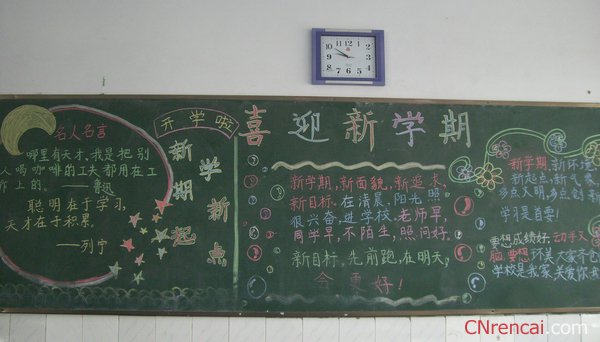 名人名言
哪里有天才,我是把别
人喝咖啡的工夫都用在工
作上的。——鲁迅
聪明在于学习,
天才在于积累。
——列宁
开学啦
新学期 新起点
喜迎新学期
新学期,新面貌,新追求,
新目标。在清晨,阳光照,
很兴奋,进学校。老师早,
同学早,不陌生,照问好。
新目标,先前跑,在明天,
会更好!
新学期,新环境
新起点,新气象
多点文明,多点创新
学习是首要!
要想成绩好,动手又
脑,要想环美大家齐
学校是我家,关爱你我
12 1 2 3 4 5 6 7 8 9 10 11
CNrencai.com